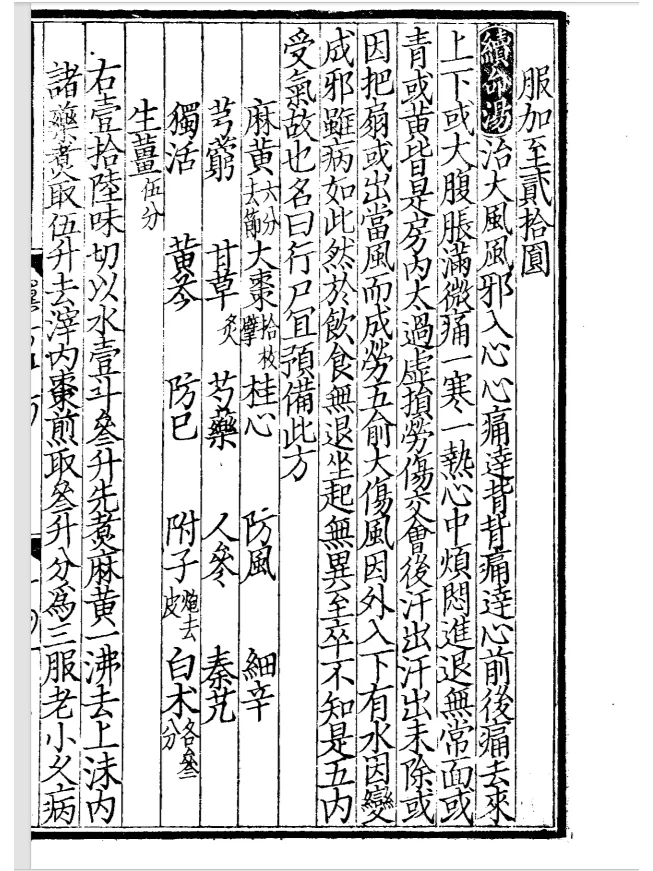 服加至貳拾圓
續命湯治大風風邪入心心痛達背背痛達心前後痛去來
上下或大腹脹滿微痛一寒一熱心中煩悶進退無常面或
青或黃皆是房內太過虛損勞傷交會後汗出汗出未除或
因把扇或出當風而成勞五俞大傷風因外入下有水因變
成邪雖病如此然於飲食無退坐起無異至卒不知是五內
受氣故也名曰行尸宜預備此方
麻黃六分去節 大棗拾枚擘 桂心 防風 細辛
芎藭 甘草炙 芍藥 人參 秦艽
獨活 黃芩 防已 附子炮去皮 白术各叄分
生薑伍分
右壹拾陸味切以水壹斗叄升先煮麻黃一沸去上沫內
諸藥煮取伍升去滓內棗煎取叄升分為三服老小久病